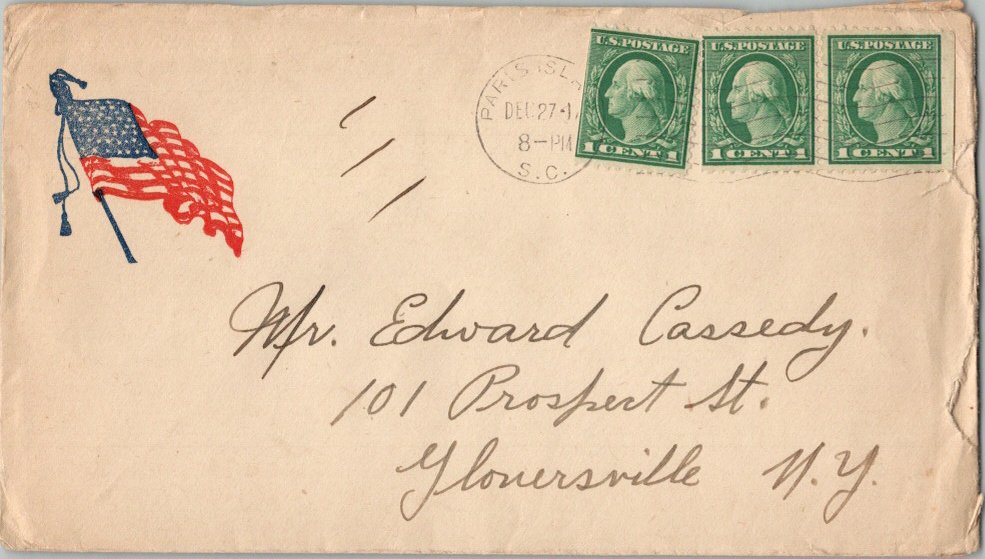 PARIS ISLA
DEC 27-1
8-PM
S.C.
U.S. POSTAGE
1 CENT 1
U.S. POSTAGE
1 CENT 1
U.S. POSTAGE
1 CENT 1
Mr. Edward Cassedy.
101 Prospect St.
Gloversville N.Y.